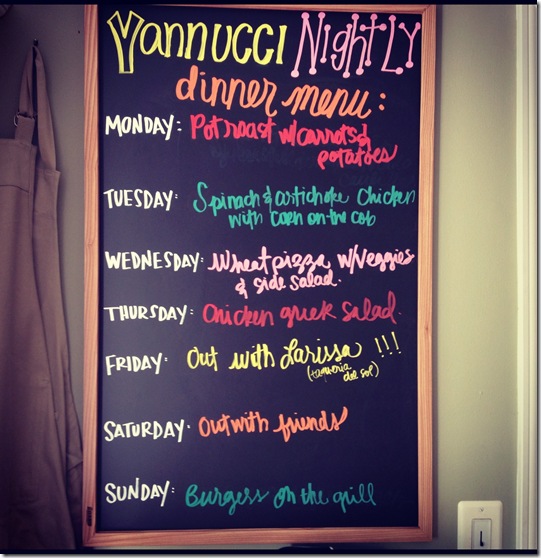 Yannucci Nightly
dinner menu:
MONDAY: Pot roast w/carrots &
potatoes
TUESDAY: Spinach & artichoke chicken
with corn on the cob
WEDNESDAY: Wheat pizza w/veggies
& side salad.
THURSDAY: Chicken greek salad.
FRIDAY: Out with Larissa !!!
(taqueria
del sol)
SATURDAY: Out with friends
SUNDAY: Burgers on the grill